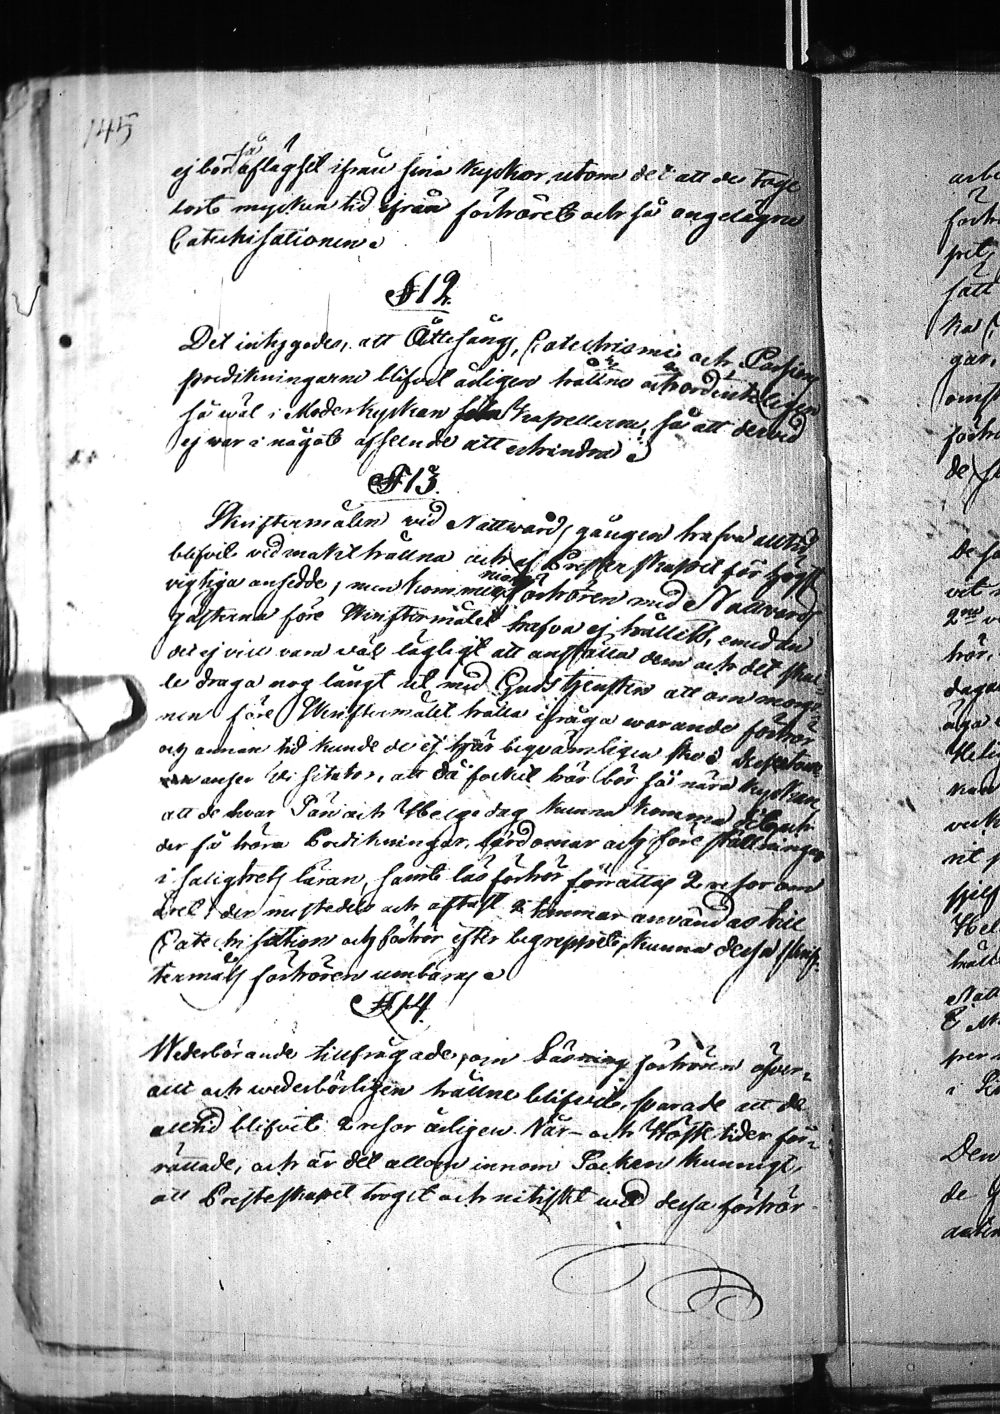 145
ej bör så aflägset ifrån sina Kyrkor, utom det att de tage
bort mycken tid ifrån förhöret och så angelägne
Catechisationen.
§ 12.
Det intygades, att Ottesång, Catechismi och Passions
predikningarne blifvit årligen hållne och ordenteligen
så wäl i Moderkyrkan som Kapellerne, så att dervid
ej war i något afseende att erhindra.
§ 13.
Skriftermålen vid Nattwards gången hafva alltid
blifvit vid makt hållna och af Presterskapet för högst
vigtiga ansedde, men Kommunion förhören med Nattvards
gästerna före Skriftermålet hafva ej hållits, emedan
det ej vill vara wäl lägligt att anställa dem och det skul-
le draga nog långt ut med Gudstjensten att om morgo-
nen före Skriftermålet hålla ifråga warande förhör
och annan tid kunde de ej här beqvämligen ske.
anser Visitator, att då folket här bor så nära Kyrkan,
att de hvar Sön och Helgedag kunna komma dit och
der få höra Predikningar, lärdomar och föreställningar
i salighets läran, samt läsförhör förrättas 2 resor om
året, der mestedels och oftast 2 timmar användas till
Catechisation och förhör efter begreppet, kunna dessa skrif-
termåls förhören umbäras.
§ 14.
Wederbörande tillfrågade, om Läsning förhören öfver-
allt och wederbörligen hållne blifvit, svarade att de
alltid blifvit 2 resor årligen Vår- och Höste tider för-
rättade, och är det allom innom Socken kunnigt,
att Presteskapet troget och nitiskt wid dessa förhör